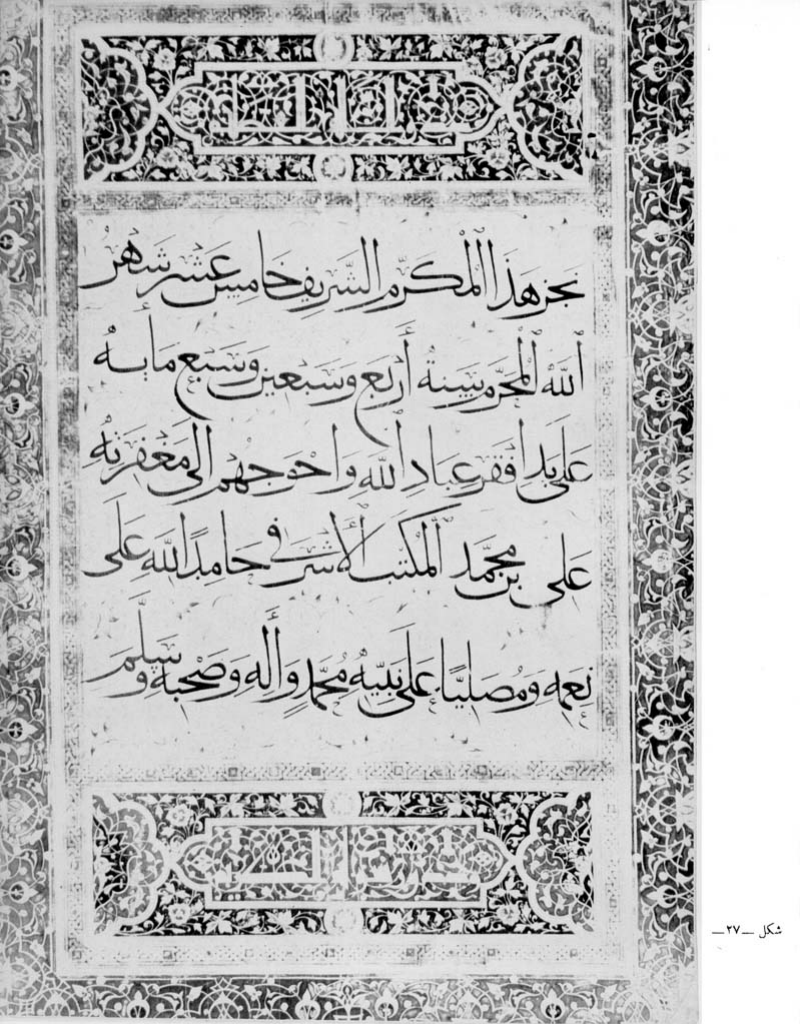 نجز هذا المكرم الشريف خامس عشر شهر
الله المحرم سنة أربع وسبعين وسبع مأيه
على يد افقر عباد الله واحوجهم الى مغفرته
على بن محمد المكتب الأشرفى حامدا لله على
نعمه ومصليا على نبيه محمد وأله وصحبه وسلم
شكل —٢٧—